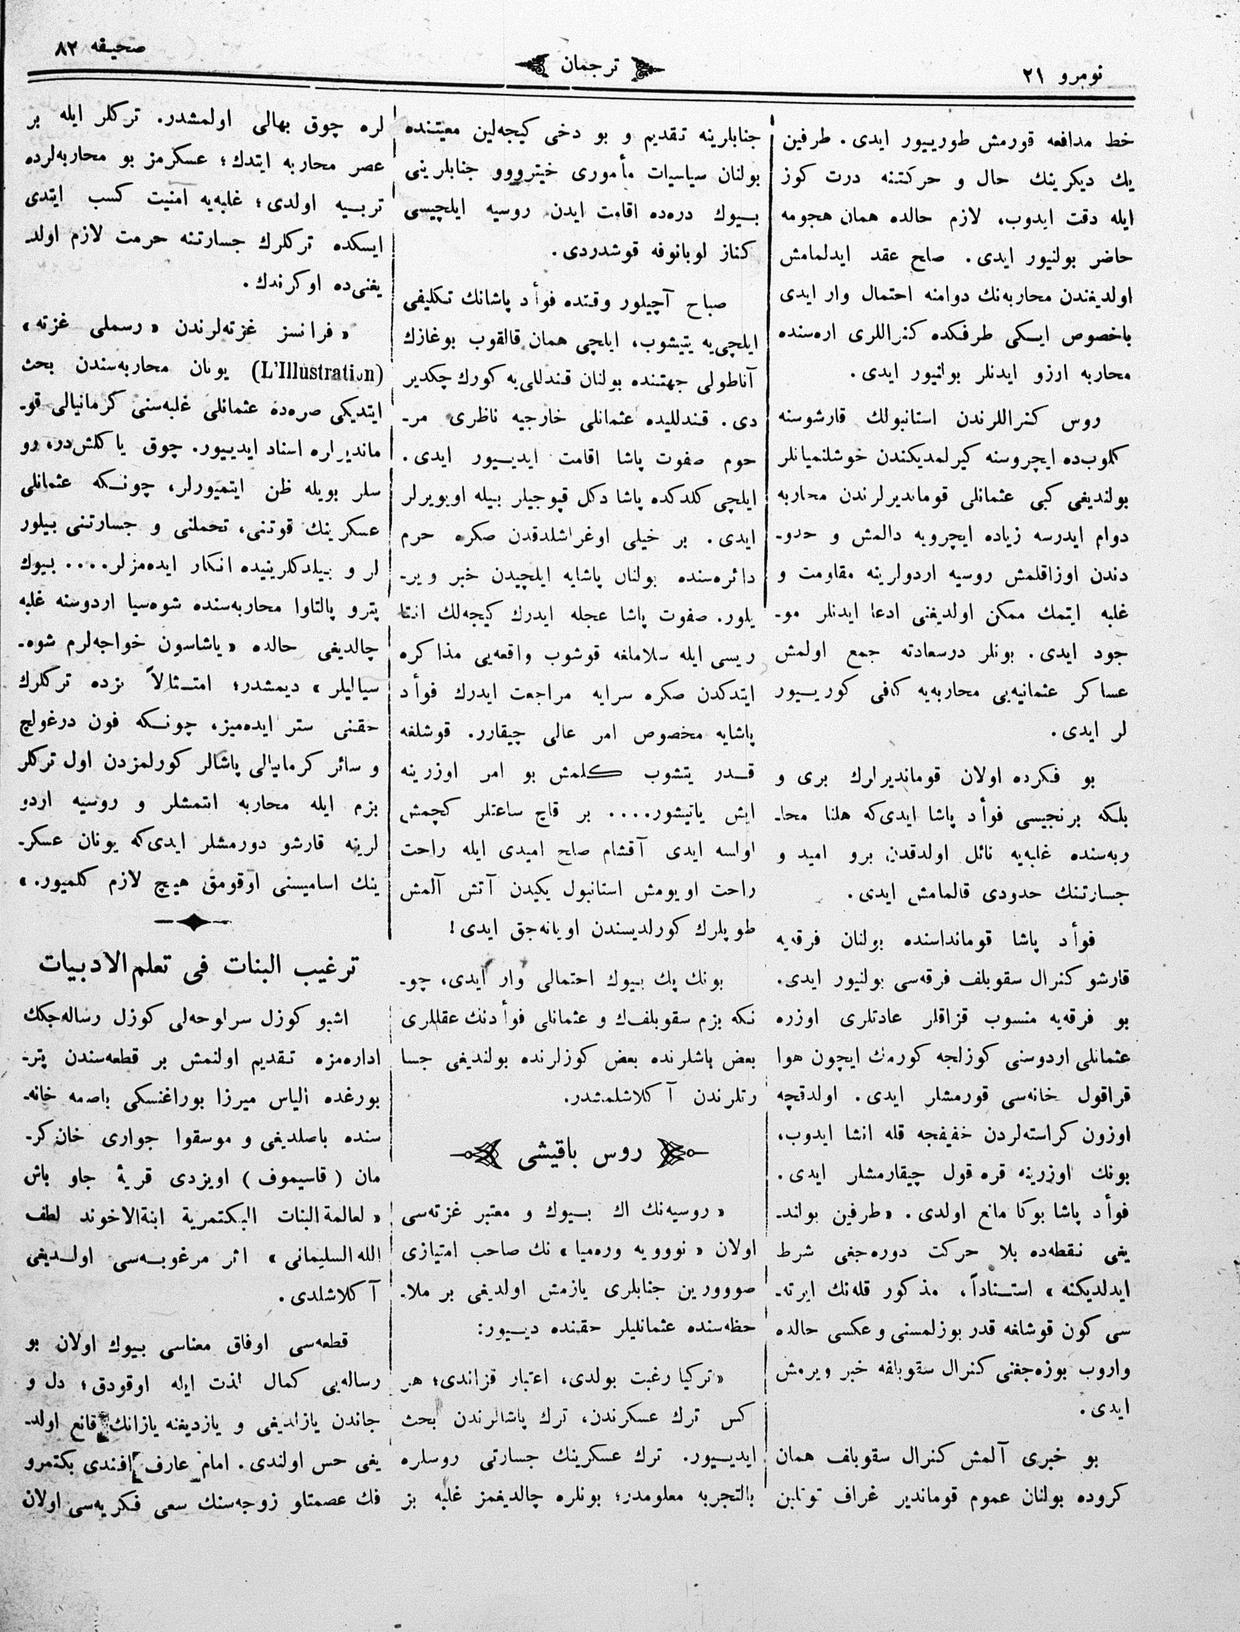 نومرو ٢١
ترجمان
صحيفه ٨٢
خط مدافعه قورمش طوریيور ايدى. طرفين
يك ديكرينك حال و حركتنه درت كوز
ايله دقت ايدوب، لازم حالده همان هجومه
حاضر بولنيور ايدى. صلح عقد ايدلمامش
اولديغندن محاربه‌نك دوامنه احتمال وار ايدى
باخصوص ايكى طرفكده كنراللرى اره‌سنده
محاربه ارزو ايدنلر بولنيور ايدى.
روس كنراللرندن استانبولك قارشوسنه
كلوب‌ده ايچروسنه كيرلمديكندن خوشلنميانلر
بولنديغى كبى عثمانلى قومانديرلرندن محاربه
دوام ايدرسه زياده ايچرويه دالمش و حدو-
دندن اوزاقلمش روسيه اردولرينه مقاومت و
غلبه ايتمك ممكن اولديغنى ادعا ايدنلر مو-
جود ايدى. بونلر درسعادته جمع اولمش
عساكر عثمانيه‌يى محاربه‌يه كافى كوريـيور
لر ايدى.
بو فكرده اولان قومانديرلرك برى و
بلكه برنجيسى فوأد پاشا ايدى‌كه هلنا محا-
ربه‌سنده غلبه‌يه نائل اولدقدن برو اميد و
جسارتنك حدودى قالمامش ايدى.
فوأد پاشا قومانداسنده بولنان فرقه‌يه
قارشو كنرال سقوبلف فرقه‌سى بولنيور ايدى.
بو فرقه‌يه منسوب قزاقلر عادتلرى اوزره
عثمانلى اردوسنى كوزلجه كورمك ايچون هوا
قراقول خانه‌سى قورمشلر ايدى. اولدقچه
اوزون كراسته‌لردن خفيفجه قله انشا ايدوب،
بونك اوزرينه قره قول چيقارمشلر ايدى.
فوأد پاشا بوكا مانع اولدى. «طرفين بولند-
يغى نقطه‌ده بلا حركت دوره‌جغى شرط
ايدلديكنه» استـناداً، مذكور قله‌نك ايرته-
سى كون قوشلغه قدر بوزلمسنى و عكسى حالده
واروب بوزه‌جغنى كنرال سقوبلفه خبر ويرمش
ايدى.
بو خبرى آلمش كنرال سقوبلف همان
كروده بولنان عموم قوماندير غراف توتلبن
جنابلرينه تقديم و بو دخى كيجه‌لين معيتنده
بولنان سياسيات مأمورى خيترووو جنابلرينى
بـيوك دره‌ده اقامت ايدن روسيه ايلچيسى
كناز لوبانوفه قوشدردى.
صباح آچيلور وقتده فوأد پاشانك تكليفى
ايلچى‌يه يتيشوب، ايلچى همان قالقوب بوغازك
آناطولى جهتنده بولنان قندللى‌يه كورك چكدير
دى. قندلليده عثمانلى خارجيه ناظرى مر-
حوم صفوت پاشا اقامت ايديـيور ايدى.
ايلچى كلدكده پاشا دكل قپوجيلر بيله اويويرلر
ايدى. بر خيلى اوغراشلدقدن صكره حرم
دائره‌سنده بولنان پاشايه ايلچيدن خبر وير-
يلور. صفوت پاشا عجله ايدرك كيجه‌لك انتا
ريسى ايله سلاملغه قوشوب واقعه‌يى مذاكره
ايتدكدن صكره سرايه مراجعت ايدرك فوأد
پاشايه مخصوص امر عالى چيقارر. قوشلغه
قـدر يتشوب كلمش بو امر اوزرينه
ايش ياتيشور.... بر قاچ ساعتلر كچمش
اولسه ايدى آقشام صلح اميدى ايله راحت
راحت اويومش استانبول يكيدن آتش آلمش
طوپلرك كورلديسندن اويانه‌جق ايدى!
بونك پك بـيوك احتمالى وار ايدى، چو-
نكه بزم سقوبلف‌ك و عثمانلى فوأدنك عقللرى
بعض باشلرنده بعض كوزلرنده بولنديغى جسا
رتلرندن آكلاشلمشدر.
روس باقيشى
«روسيه‌نك اك بـيوك و معتبر غزته‌سى
اولان «نوويه وره‌ميا» نك صاحب امتيازى
صووورين جنابلرى يازمش اولديغى بر ملا-
حظه‌سنده عثمانليلر حقنده ديـيور:
«تركيا رغبت بولدى، اعتبار قزاندى؛ هر
كس ترك عسكرندن، ترك پاشالرندن بحث
ايديـيور. ترك عسكرينك جسارتى روسلره
بالتجربه معلومدر؛ بونلره چالديغمز غلبه بز
لره چوق بهالى اولمشدر. تركلر ايله بر
عصر محاربه ايتدك؛ عسكرمز بو محاربه‌لرده
تربـيه اولدى؛ غلبه‌يه آمنيت كسب ايتدى
ايسكده تركلرك جسارتنه حرمت لازم اولد-
يغنى‌ده اوكرندك.
«فرانسز غزته‌لرندن «رسملى غزته»
(L'Illustration) يونان محاربه‌سندن بحث
ايتديكى صره‌ده عثمانلى غلبه‌سنى كرمانيالى قو-
مانديرلره اسناد ايديـيور. چوق ياكلش‌در، رو
سلر بويله ظن ايتميورلر، چونـكه عثمانلى
عسكرينك قوتنى، تحملنى و جسارتنى بيلور
لر و بيلدكلرينيده انكار ايده‌مزلر.... بـيوك
پترو پالتاوا محاربه‌سنده شوه‌سيا اردوسنه غلبه
چالديغى حالده «ياشاسون خواجه‌لرم شوه-
سياليلر» ديمشدر؛ امتـثالاً بزده تركلرك
حقنى ستر ايده‌ميز، چونـكه فون درغولچ
و سائر كرمانيالى پاشالر كورلمزدن اول تركلر
بزم ايله محاربه ايتمشلر و روسيه اردو
لرينه قارشو دورمشلر ايدى‌كه يونان عسكر-
ينك اساميسنى اوقومق هيچ لازم كلميور.»
ترغيب البنات فى تعلم الادبيات
اشبو كوزل سرلوحه‌لى كوزل رساله‌جكك
اداره‌مزه تـقديم اولنمش بر قطعه‌سندن پتر-
بورغده الياس ميرزا بوراغنسكى باصمه خانه-
سنده باصلديغى و موسقوا جوارى خان كر-
مان (قاسيموف) اويزدى قريۀ جاو باش
«لعالمة البنات البكتمرية ابنة الاخوند لطف
الله السليمانى» اثر مرغوبـه‌سى اولـديغى
آكلاشلدى.
قطعه‌سى اوفاق معناسى بـيوك اولان بو
رساله‌يى كمال لذت ايله اوقودق؛ دل و
جاندن يازلديغى و يازديغنه يازانك قانع اولد-
يغى حس اولندى. امام عارف افندى بكتمرو
فك عصمتلو زوجه‌سنك سعى فكريه‌سى اولان